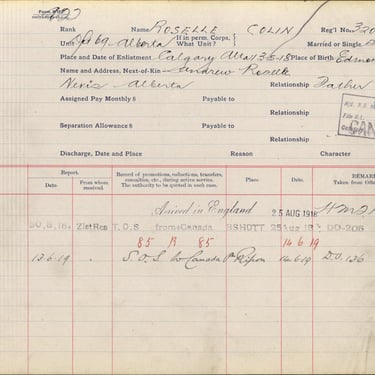 Rank Name ROSELLE COLIN Reg'l No. 320
Unit Dpt 69 Alberta If in perm. Corps, What Unit? Married or Single
Place and Date of Enlistment Calgary Alta 13-5-18 Place of Birth Edmon
Name and Address, Next-of-Kin Andrew Roselle
Nevis Alberta Relationship Father
Assigned Pay Monthly $ Payable to
Relationship
Separation Allowance $ Payable to
CAN
Relationship
Discharge, Date and Place Reason Character
Report. Record of promotions, reductions, transfers, casualties, etc., during active service. The authority to be quoted in each case. Place. Date. REMAR
Date. From whom received. Taken from Offi
Arrived in England 25 AUG 1918
30.8.18. 21stRes T.O.S from Canada BSHOTT 25 Aug 18 DO-206
85 R 85 14 6 19
13.6.19 S.O.S to Canada Ripon 14.6.19 D.O. 136